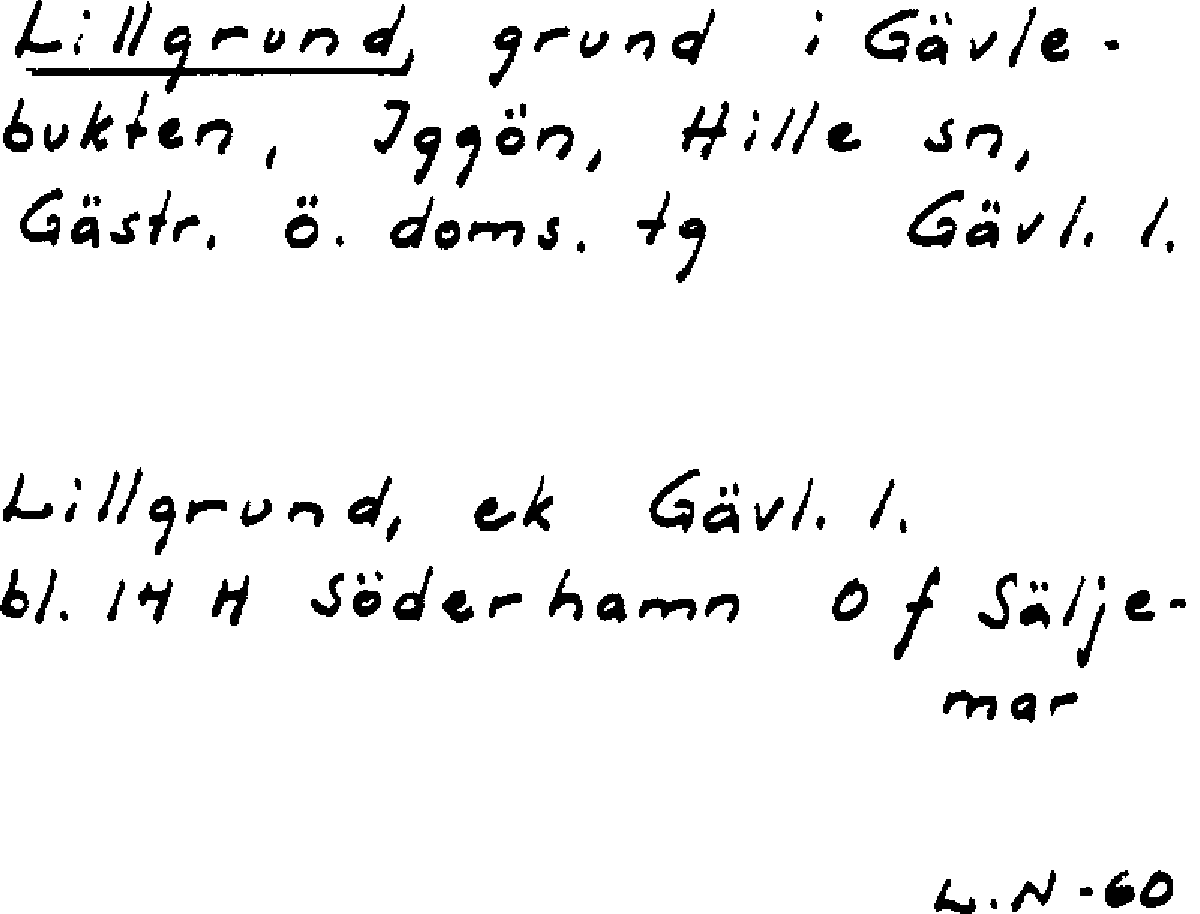 Lillgrund, grund i Gävle-
bukten, Iggön, Hille sn,
Gästr. ö. doms. tg Gävl. l.
Lillgrund, ek Gävl. l.
bl. 14 H Söderhamn O f Sälje-
mar
L.N -60